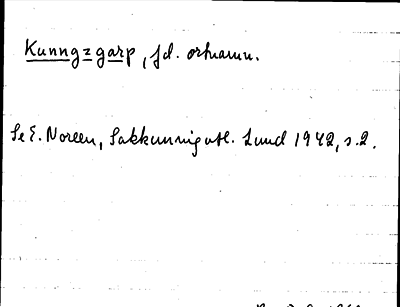 Kunngzgarp, fd. ortnamn.
Se E. Noreen, Sakkunnigutl. Lund 1942, s.2.